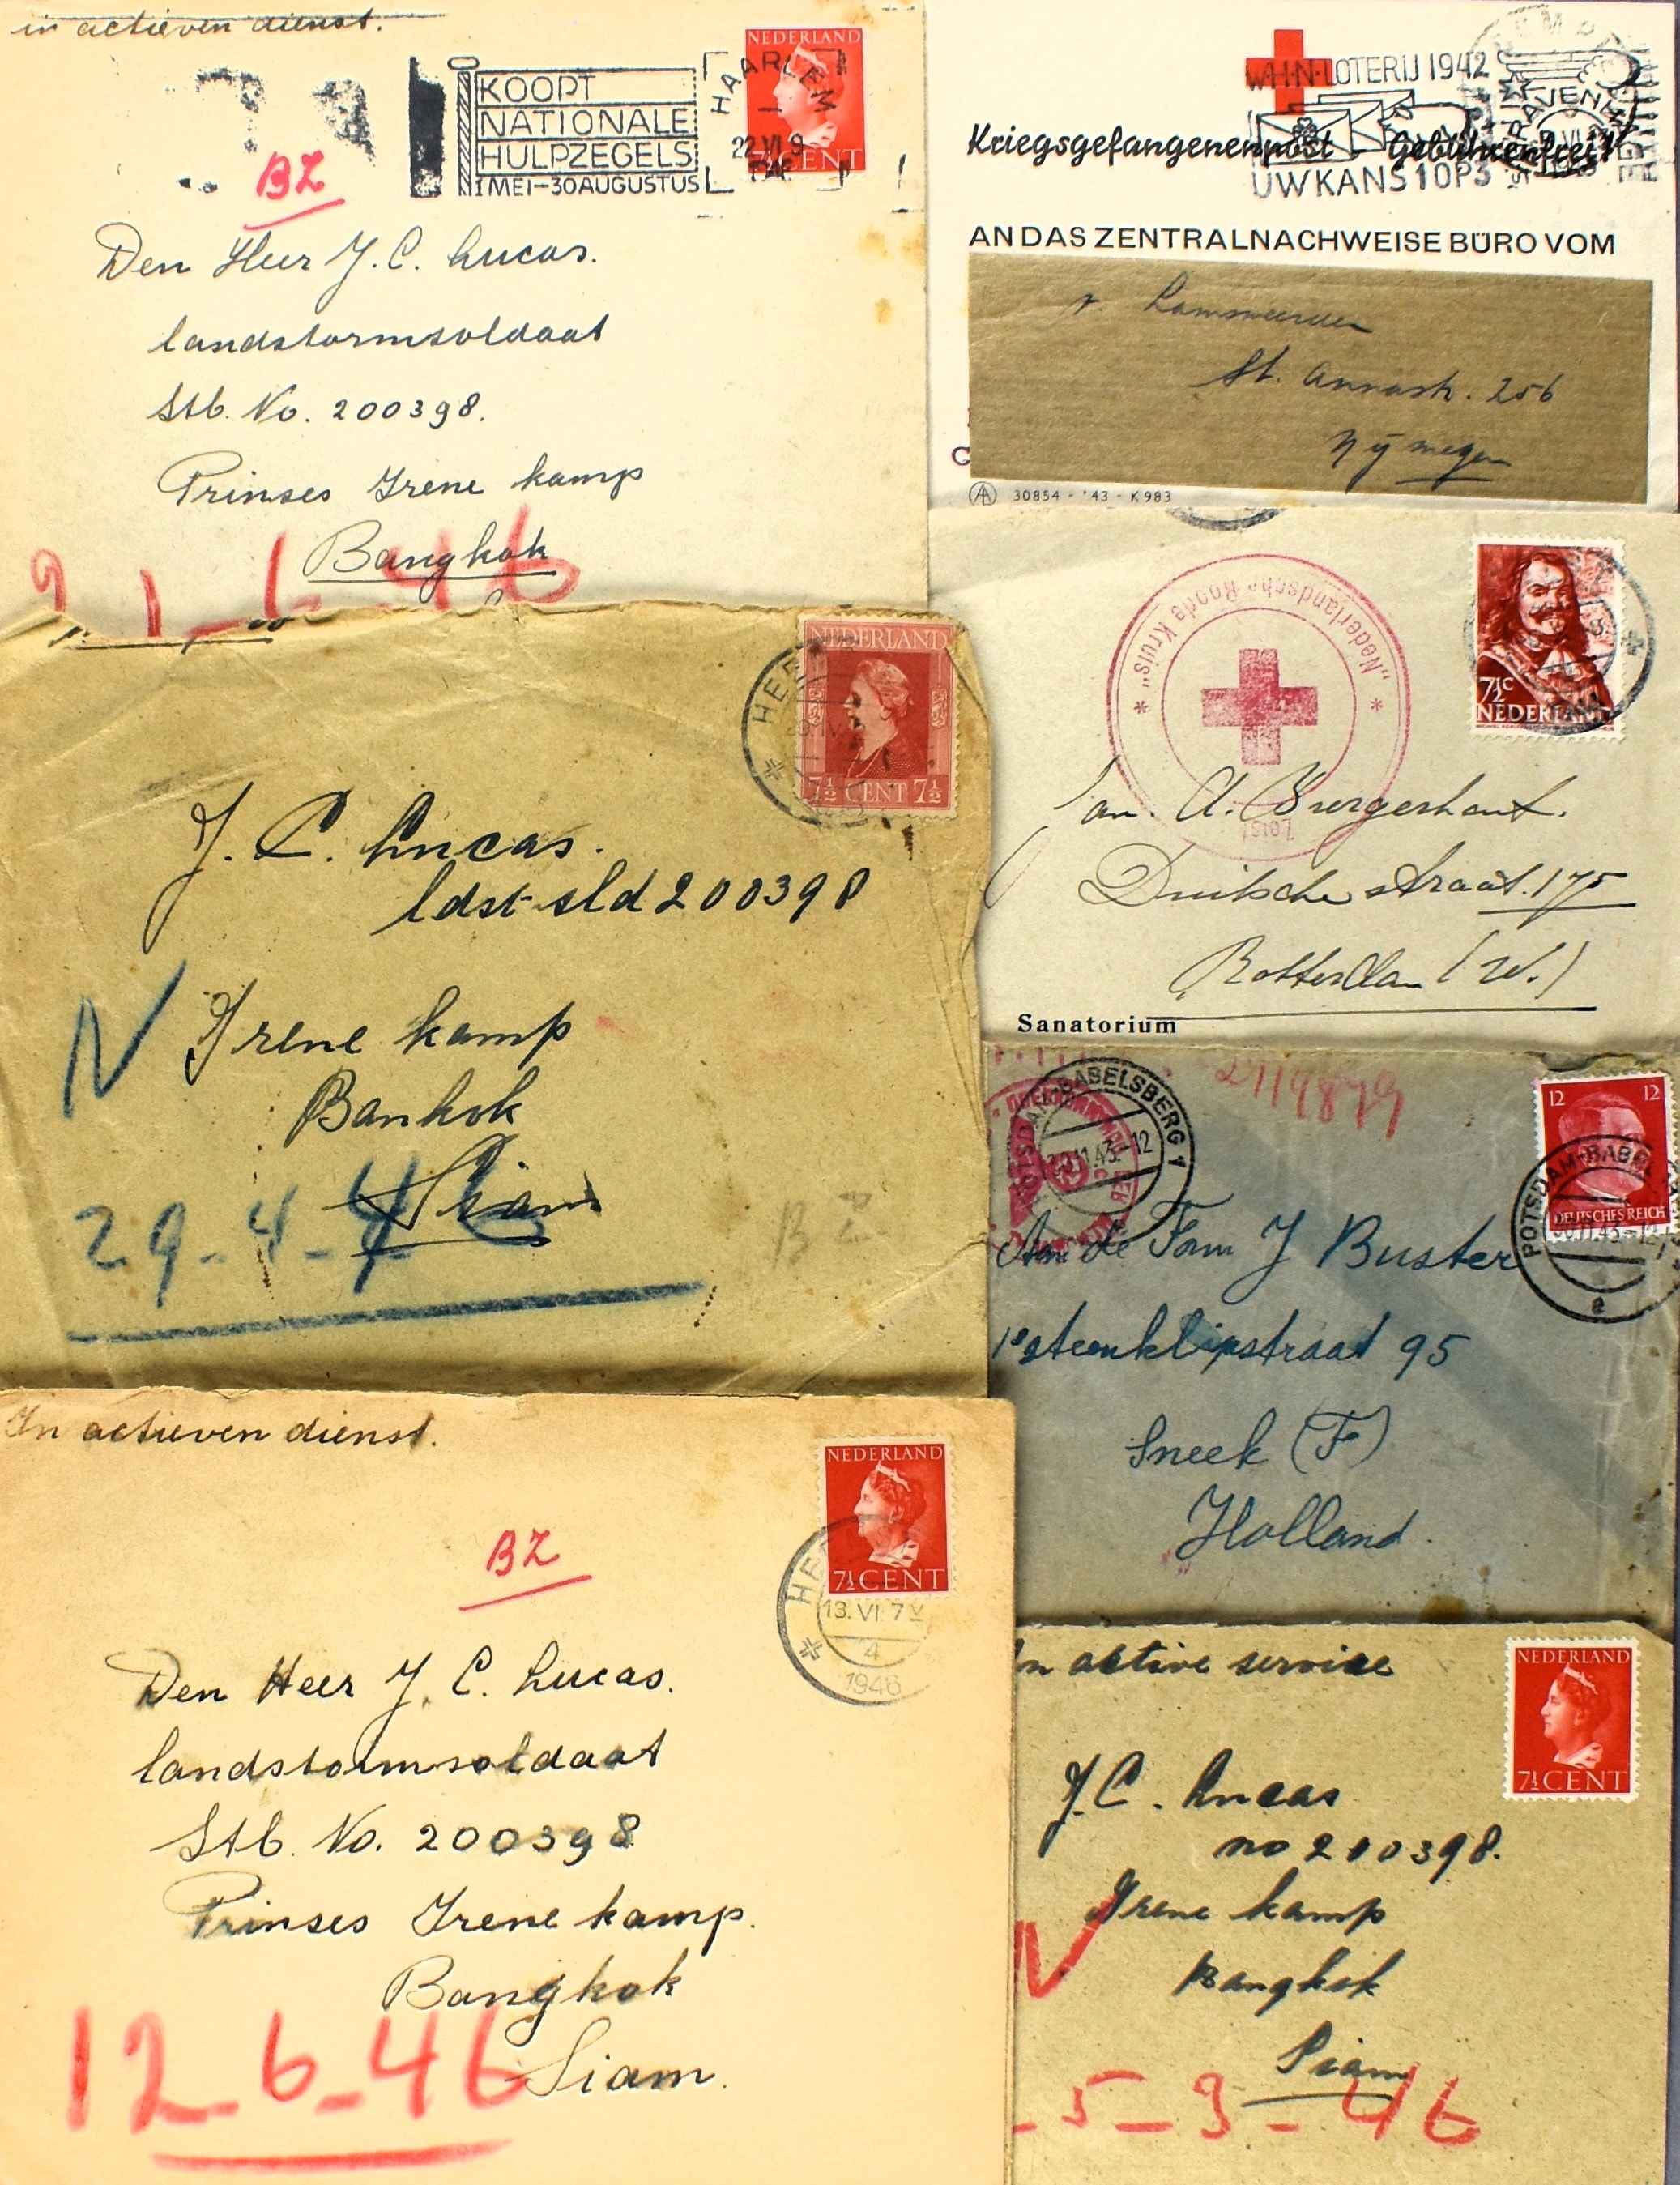 in actieven dienst.
NEDERLAND
KOOPT
NATIONALE
HULPZEGELS
1 MEI-30 AUGUSTUS
HAARLEM
22 VI 9
CENT
BZ
Den Heer J. C. Lucas.
landstormsoldaat
Stb. No. 200398.
Prinses Irene kamp
Bangkok
W·H·N·LOTERIJ 1942
Kriegsgefangenenpost Gebührenfrei!
UW KANS 1 OP 3
AN DAS ZENTRALNACHWEISE BÜRO VOM
v. Lamsweerden
St. Annastr. 256
Nijmegen
30854 - '43 - K 983
NEDERLAND
7½ CENT 7½
J. C. Lucas.
ldst sld 200398
N
Irene kamp
Bankok
Siam
29-4-46
BZ
"Nederlandsche Roode Kruis"
Zeist
7½c
NEDERLAND
Duitsche straat. 175
Rotterdam (W.)
Sanatorium
POTSDAM-BABELSBERG 1
12 12
DEUTSCHES REICH
POTSDAM-BABEL
Aan de Fam J Buster
1e steenklipstraat 95
Sneek (F)
Holland.
In actieven dienst.
NEDERLAND
7½ CENT
13. VI 7
4
1946
BZ
Den Heer J. C. Lucas.
landstormsoldaat
Stb. No. 200398
Prinses Irene kamp.
Bangkok
Siam.
12-6-46
In active service
NEDERLAND
7½ CENT
J. C. Lucas
no 200398.
N
Irene kamp
Bangkok
Siam
5-9-46